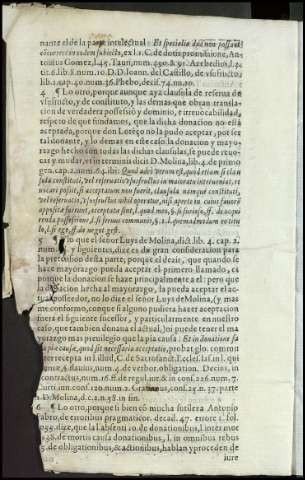 nante el de la parte intelectual: Et specialia duo non possunt
cōcurrere in eodem subiecto, ex l. 1. C. de dotis promissione, An-
tonius Gomez, l. 45. Tauri, num. 490. & 91. Azebedius, l. 4.
tit. 6. lib. 8. num. 10. D. D. Ioann. del Castillo, de vsufructu,
lib. 1. cap. 40. num. 36. Phebo, decis. 74. nu. 10.
4 ¶ Lo otro, porque aunque aya clausula de reserua de
vsufructo, y de constituto, y las demas que obran transla-
cion de verdadera possessiō y dominio, e irreuocabilidad,
respeto de que fundamos, que la dicha donacion no està
aceptada, porque don Lorēço no la pudo aceptar, por ser
tal donante, y lo demas en este caso la donacion y mayo-
razgo hecho son todas las dichas clausulas, se puede reuo-
car y mudar, vt in terminis dicit D. Molina, lib. 4. de primo
gen. cap. 2. num. 64. ibi: Quod adeò verum est, quod etiam si clau
sula constituti, vel reseruatio vsusfructus in maioratu interueniat, re
uocari possit, si acceptatum non fuerit, clausula namque constituti,
vel reseruatio, vsusfructus nihil operatur, nisi aperte in cuius fauorē
apposita fuerunt, acceptata sint, l. quod meo, §. si furioso, ff. de acqui
renda possessione, l. si seruus communis, §. 1. quemadmodum ea tute
lo, l. si ego, ff. de negot. gest.
5 ¶ Lo que el señor Luys de Molina, dict. lib. 4. cap. 2.
num. , y siguientes, dize es de gran consideracion para
la pretension desta parte, porque el dezir, que quando se
haze mayorazgo pueda aceptar el primero llamado, es
porque la donacion se haze principalmente a el: pero que
la donacion hecha al mayorazgo, la pueda aceptar el ac-
tual possedor, no lo dize el señor Luys de Molina, (y mas
me conformo, conque si alguno pudiera hazer aceptacion
fuera el siguiente sucessor, y particularmente en nuestro
caso, que tambien donaua el actual,) ni puede tener el ma
yorazgo mas preuilegio que la pia causa: Et in donatione fa
cta pia causæ, quod sit necessaria acceptatio, probat glo. commu
niter recepta in l. illud, C. de Sacrosanct. Ecclesias. in l. qui
Romæ, §. flauius, num. 4. de verbor. obligation. Decius, in
l. contractus, num. 16. ff. de regul. iur. & in cons. 226. num. 7.
Curti. iun. cons. 129. num. 2. Gratianus, cons. 23. num. 79. parte
1. D. Molina, d. c. 2. n. 58. in fin.
6 ¶ Lo otro, porque si biē cō mucha sutileza Antonio
Fabro, de erroribus pragmaticor. decad. 47. errore 1. fol.
939. dize, que la l. absenti 10. de donationibus, l. inter mor
38. de mortis causa donationibus, l. in omnibus rebus
5. de obligationibus, & actionibus, hablan y proceden de
iure